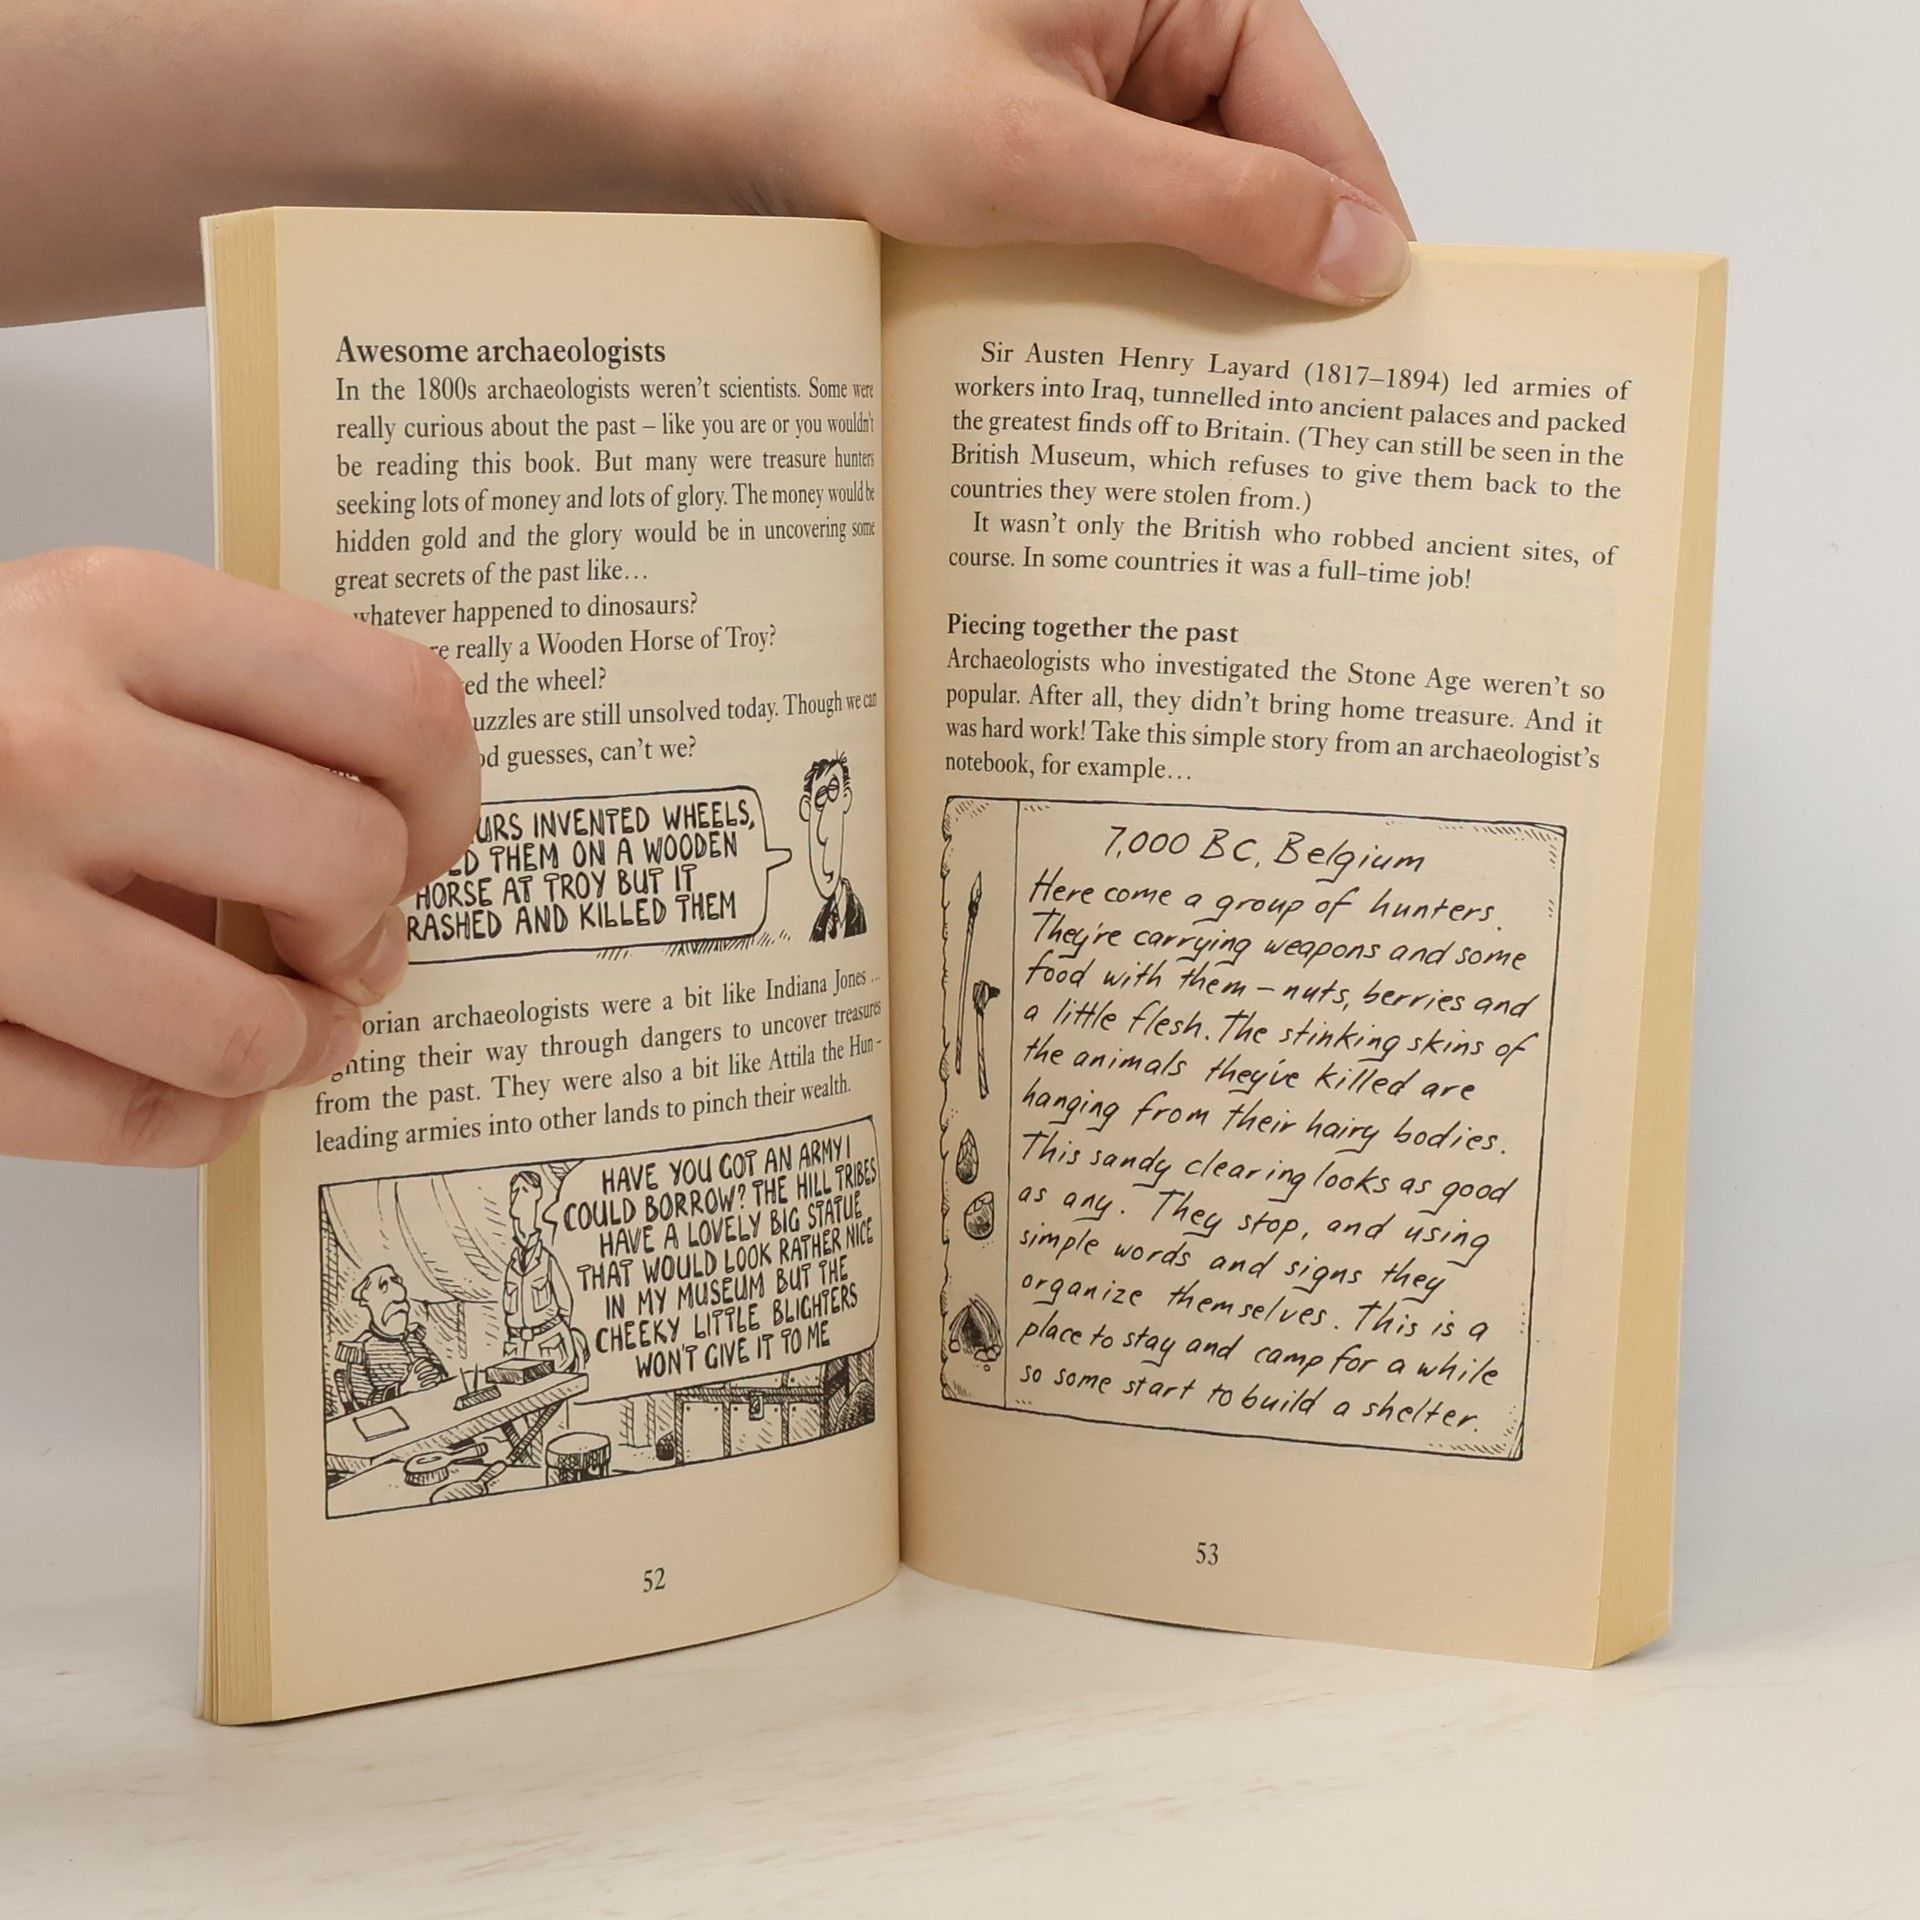 Awesome archaeologists
In the 1800s archaeologists weren't scientists. Some were
really curious about the past – like you are or you wouldn't
be reading this book. But many were treasure hunters
seeking lots of money and lots of glory. The money would be
hidden gold and the glory would be in uncovering some
great secrets of the past like…
whatever happened to dinosaurs?
really a Wooden Horse of Troy?
the wheel?
are still unsolved today. Though we can
guesses, can't we?
INVENTED WHEELS,
THEM ON A WOODEN
HORSE AT TROY BUT IT
AND KILLED THEM
archaeologists were a bit like Indiana Jones …
their way through dangers to uncover treasures
from the past. They were also a bit like Attila the Hun -
leading armies into other lands to pinch their wealth.
HAVE YOU GOT AN ARMY I
COULD BORROW? THE HILL TRIBES
HAVE A LOVELY BIG STATUE
THAT WOULD LOOK RATHER NICE
IN MY MUSEUM BUT THE
CHEEKY LITTLE BLIGHTERS
WON'T GIVE IT TO ME
52
Sir Austen Henry Layard (1817–1894) led armies of
workers into Iraq, tunnelled into ancient palaces and packed
the greatest finds off to Britain. (They can still be seen in the
British Museum, which refuses to give them back to the
countries they were stolen from.)
It wasn't only the British who robbed ancient sites, of
course. In some countries it was a full-time job!
Piecing together the past
Archaeologists who investigated the Stone Age weren't so
popular. After all, they didn't bring home treasure. And it
was hard work! Take this simple story from an archaeologist's
notebook, for example…
7,000 BC, Belgium
Here come a group of hunters.
They're carrying weapons and some
food with them – nuts, berries and
a little flesh. The stinking skins of
the animals they've killed are
hanging from their hairy bodies.
This sandy clearing looks as good
as any. They stop, and using
simple words and signs they
organize themselves. This is a
place to stay and camp for a while
so some start to build a shelter.
53